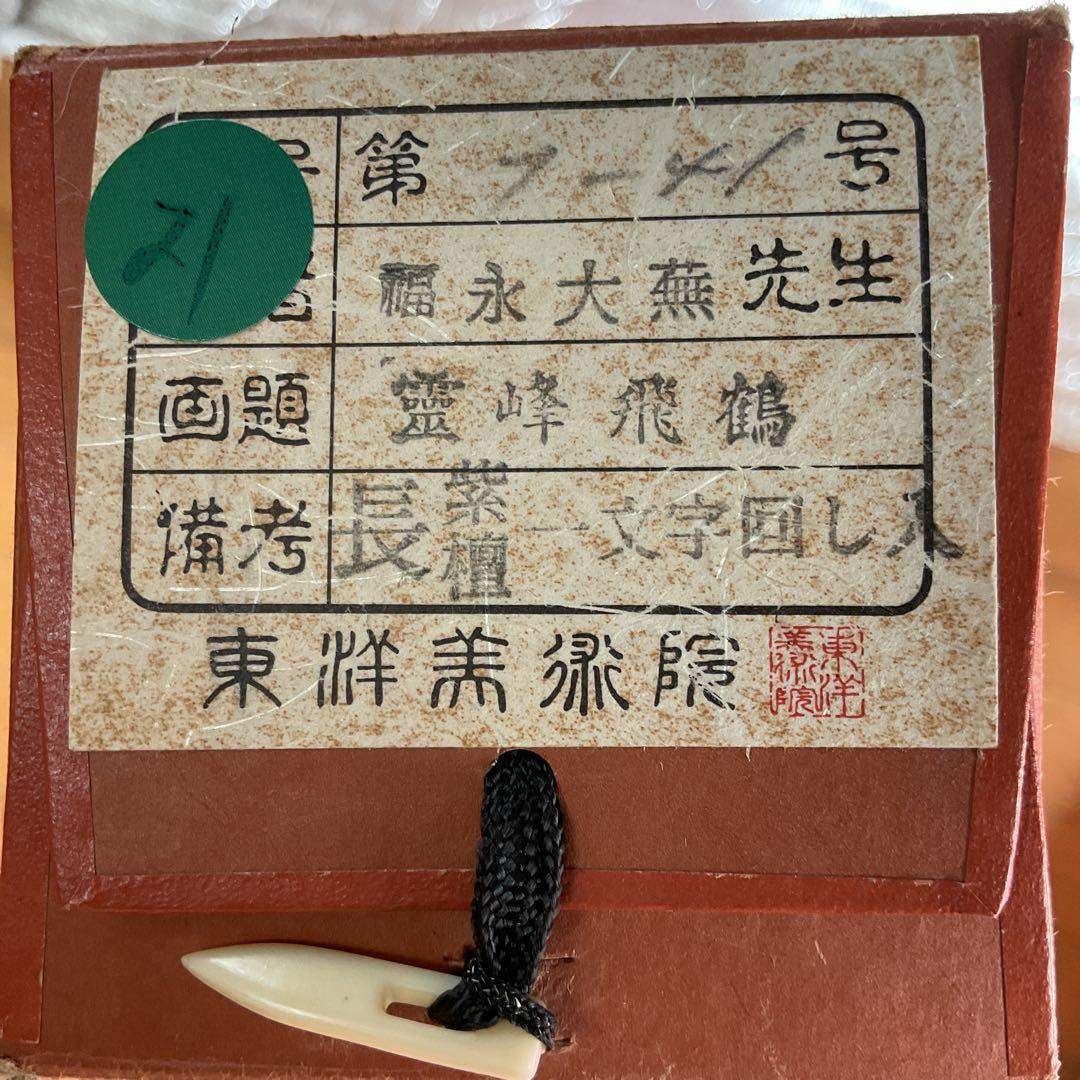 21
第 7-41 号
福永大蕪先生
画題 靈峰飛鶴
備考 長紫檀一文字囬し入
東洋美術院
東洋美術院